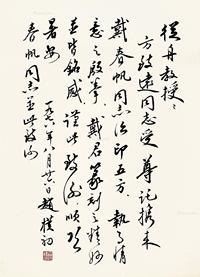 从舟教授：
方致远同志受尊托携来
戴春帆同志治印五方，执事情
意之殷挚，戴君篆刻之精妙
并皆铭感，谨此致谢，顺颂
暑安
春帆同志并此致谢
一九七八年八月廿一日赵朴初